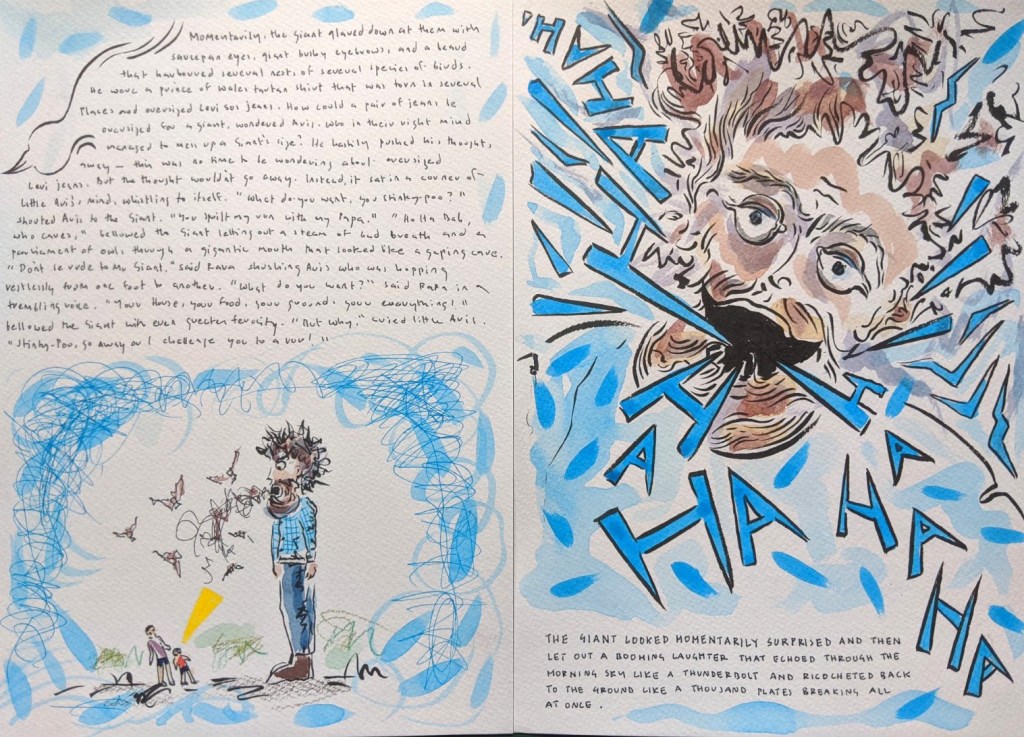 Momentarily, the giant glared down at them with
saucepan eyes, giant bushy eyebrows, and a beard
that harboured several nests of several species of birds.
He wore a prince of wales tartan shirt that was torn in several
places and oversized Levi 501 jeans. How could a pair of jeans be
oversized for a giant, wondered Avis. Who in their right mind
managed to mess up a Giant's size? He hastily pushed his thoughts
away — this was no time to be wondering about oversized
Levi jeans. But the thought wouldn't go away. Instead, it sat in a corner of
little Avi's mind, whistling to itself. "What do you want, you stinky-poo?"
shouted Avis to the Giant. "You spoilt my run with my Papa." "Ha Ha Bah,
who cares," bellowed the Giant letting out a steam of bad breath and a
parliament of owls through a gigantic mouth that looked like a gaping cave.
"Don't be rude to Mr Giant." said Papa shushing Avis who was hopping
restlessly from one foot to another. "What do you want?" said Papa in a
trembling voice. "Your House, your food, your ground, your everything!"
bellowed the Giant with even greater ferocity. "But why," cried little Avis.
"Stinky-Poo, go away or I challenge you to a war!"
'HA
HAHAHA
HAHA
HA
HA
HA
HA
HA
THE GIANT LOOKED MOMENTARILY SURPRISED AND THEN
LET OUT A BOOMING LAUGHTER THAT ECHOED THROUGH THE
MORNING SKY LIKE A THUNDERBOLT AND RICOCHETED BACK
TO THE GROUND LIKE A THOUSAND PLATES BREAKING ALL
AT ONCE.